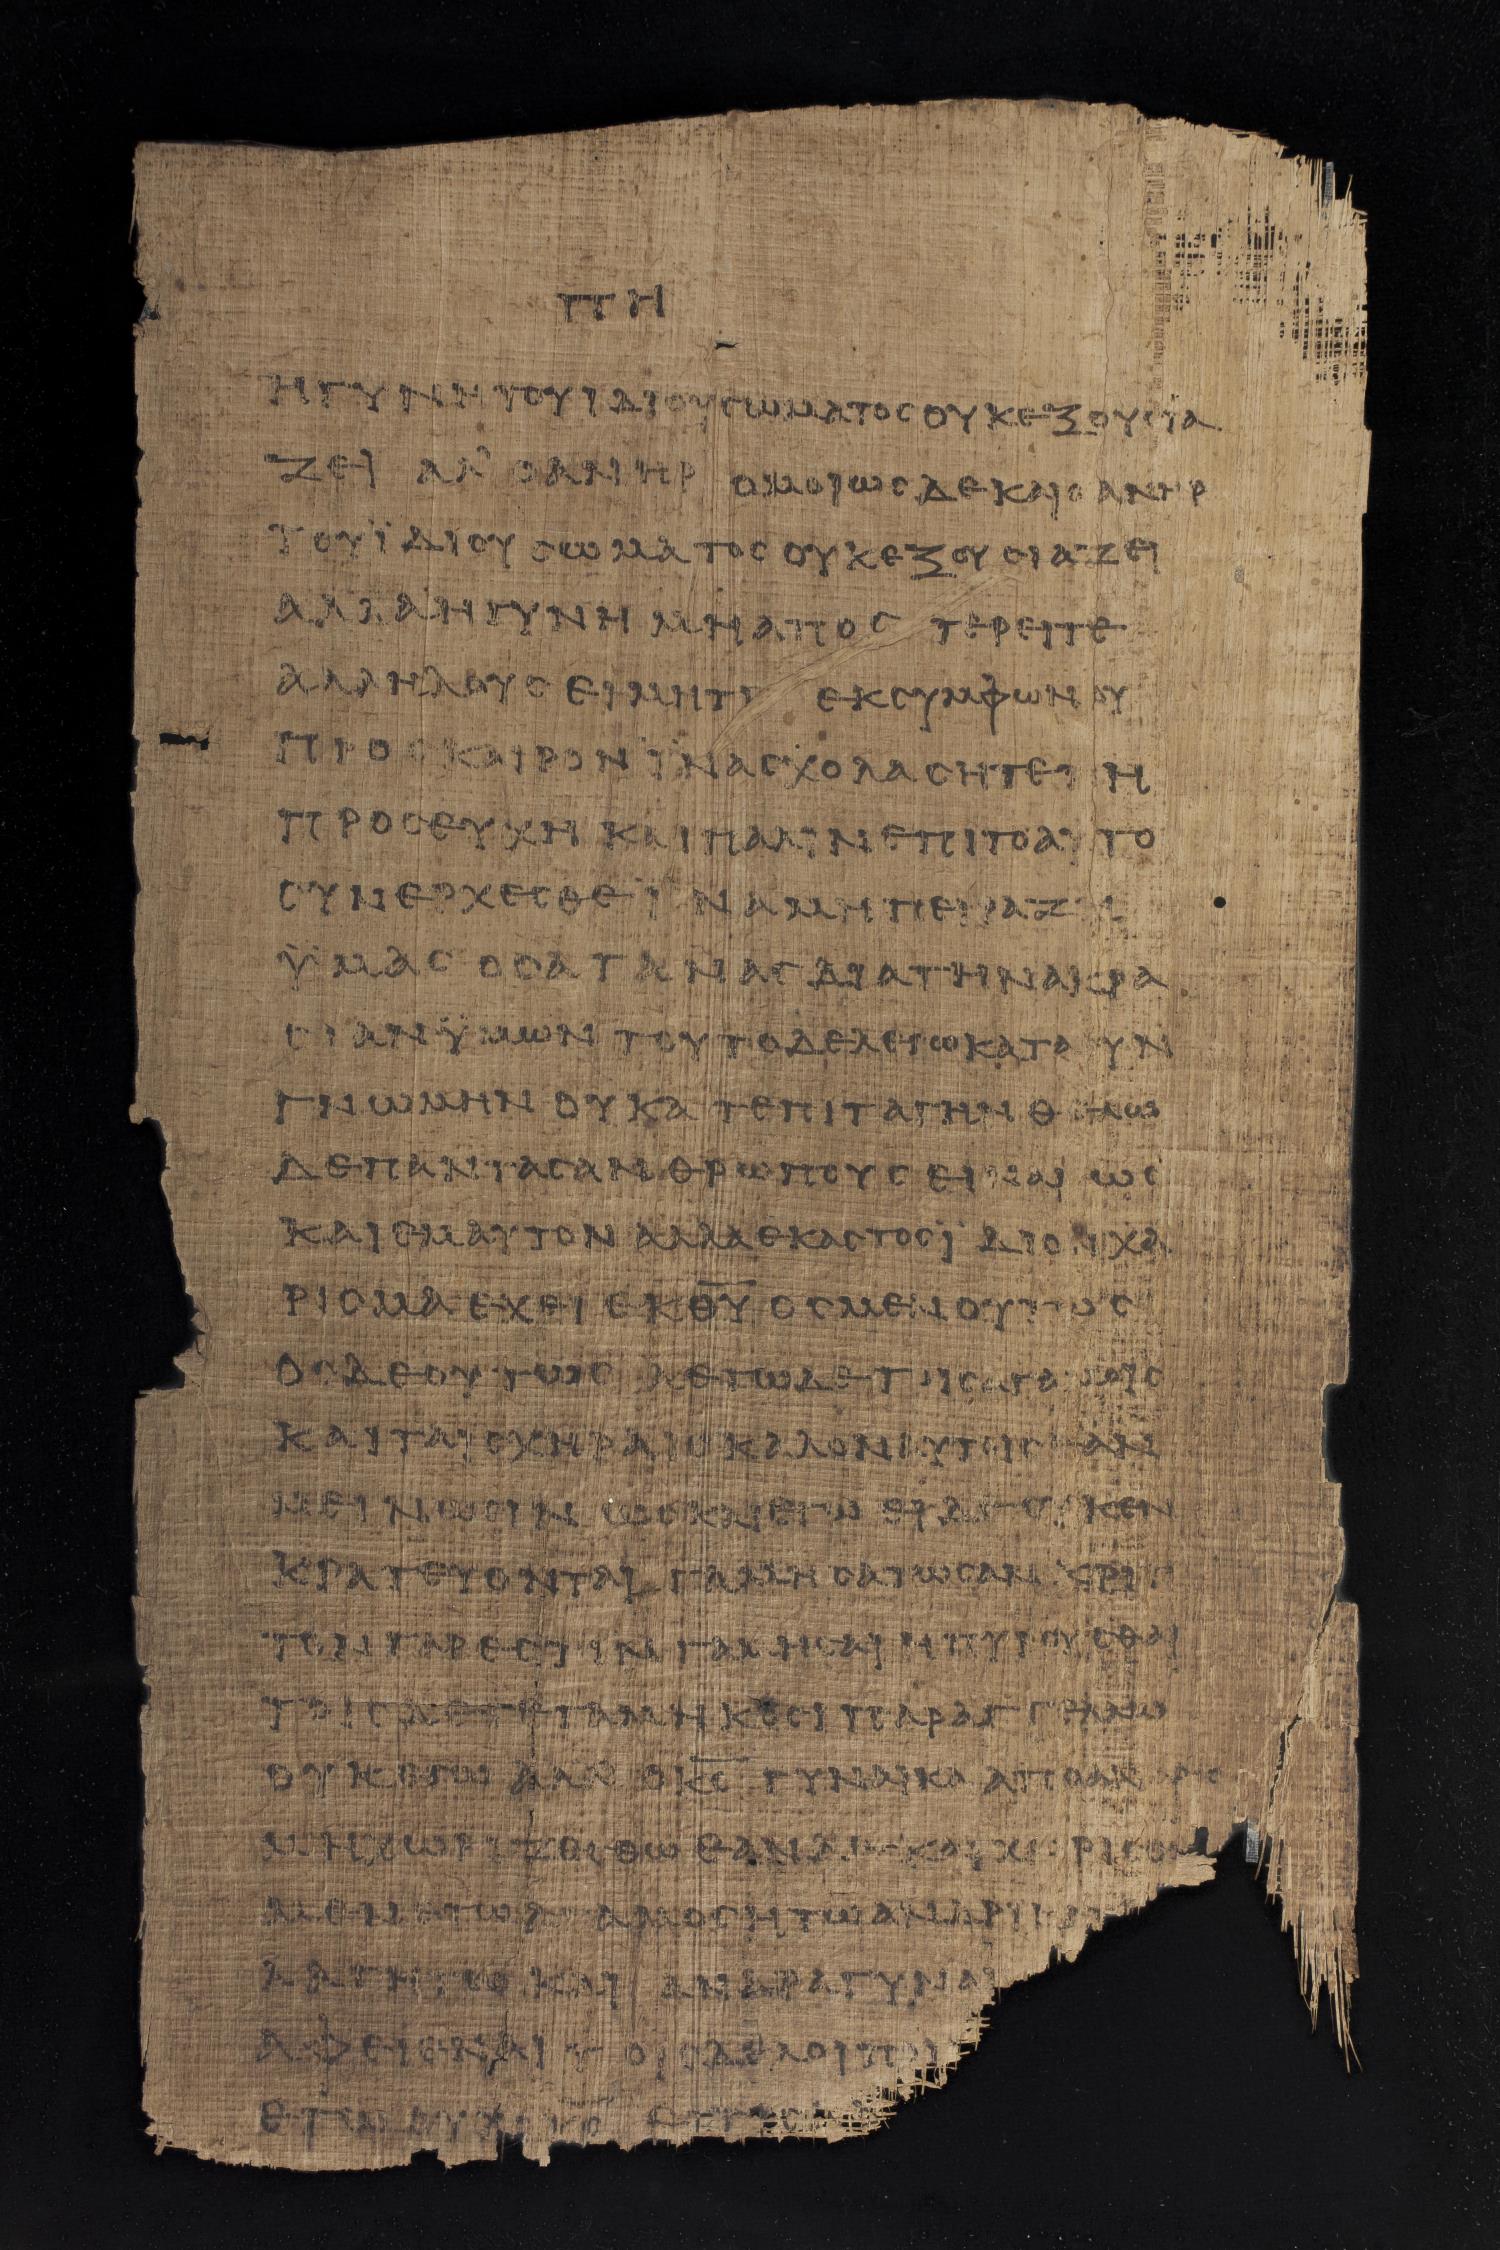 ΠΗ
Η ΓΥΝΗ ΤΟΥ ΙΔΙΟΥ ΣΩΜΑΤΟΣ ΟΥΚ ΕΞΟΥΣΙΑ
ΖΕΙ ΑΛ᾽ Ο ΑΝΗΡ ΟΜΟΙΩΣ ΔΕ ΚΑΙ Ο ΑΝΗΡ
ΤΟΥ ΪΔΙΟΥ ΣΩΜΑΤΟΣ ΟΥΚ ΕΞΟΥΣΙΑΖΕΙ
ΑΛΛΑ Η ΓΥΝΗ ΜΗ ΑΠΟΣΤΕΡΕΙΤΕ
ΑΛΛΗΛΟΥΣ ΕΙ ΜΗΤΙ ΕΚ ΣΥΜΦΩΝΟΥ
ΠΡΟΣ ΚΑΙΡΟΝ ΪΝΑ ΣΧΟΛΑΣΗΤΕ ΤΗ
ΠΡΟΣΕΥΧΗ ΚΑΙ ΠΑΛΙΝ ΕΠΙ ΤΟ ΑΥΤΟ
ΣΥΝΕΡΧΕΣΘΕ ΪΝΑ ΜΗ ΠΕΙΡΑΖΗ
ΫΜΑΣ Ο ΣΑΤΑΝΑΣ ΔΙΑ ΤΗΝ ΑΚΡΑ
ΣΙΑΝ ΫΜΩΝ ΤΟΥΤΟ ΔΕ ΛΕΓΩ ΚΑΤΑ ΣΥΝ
ΓΝΩΜΗΝ ΟΥ ΚΑΤ ΕΠΙΤΑΓΗΝ ΘΕΛΩ
ΔΕ ΠΑΝΤΑΣ ΑΝΘΡΩΠΟΥΣ ΕΙΝΑΙ ΩΣ
ΚΑΙ ΕΜΑΥΤΟΝ ΑΛΛΑ ΕΚΑΣΤΟΣ ΪΔΙΟΝ ΧΑ
ΡΙΣΜΑ ΕΧΕΙ ΕΚ Θ̅Υ̅ Ο ΣΜΕΝ ΟΥΤΩΣ
ΟΣ ΔΕ ΟΥΤΩΣ ΛΕΓΩ ΔΕ ΤΟΙΣ ΑΓΑΜΟΙΣ
ΚΑΙ ΤΑΙΣ ΧΗΡΑΙΣ ΚΑΛΟΝ ΑΥΤΟΙΣ ΕΑΝ
ΜΕΙΝΩΣΙΝ ΩΣ ΚΑΓΩ ΕΙ ΔΕ ΟΥΚ ΕΝ
ΚΡΑΤΕΥΟΝΤΑΙ ΓΑΜΗΣΑΤΩΣΑΝ ΚΡΙΤ
ΤΟΝ ΓΑΡ ΕΣΤΙΝ ΓΑΜΗΣΑΙ Η ΠΥΡΟΥΣΘΑΙ
ΤΟΙΣ ΔΕ ΓΕΓΑΜΗΚΟΣΙ ΠΑΡΑΓΓΕΛΛΩ
ΟΥΚ ΕΓΩ ΑΛΛ᾽ Ο Κ̅Σ̅ ΓΥΝΑΙΚΑ ΑΠΟ ΑΝΔΡΟΣ
ΜΗ ΧΩΡΙΖΕΣΘΩ ΕΑΝ ΔΕ ΚΑΙ ΧΩΡΙΣΘΗ
ΜΕΝΕΤΩ ΑΓΑΜΟΣ Η ΤΩ ΑΝΔΡΙ
ΛΑΓΗΤΩ ΚΑΙ ΑΝΔΡΑ ΓΥΝΑΙ
ΑΦΕΙΕΝΑΙ ΤΟΙΣ ΔΕ ΛΟΙΠΟΙ
ΕΓΩ ΟΥΧ Ο Κ̅Σ̅ ΕΙ ΤΙΣ